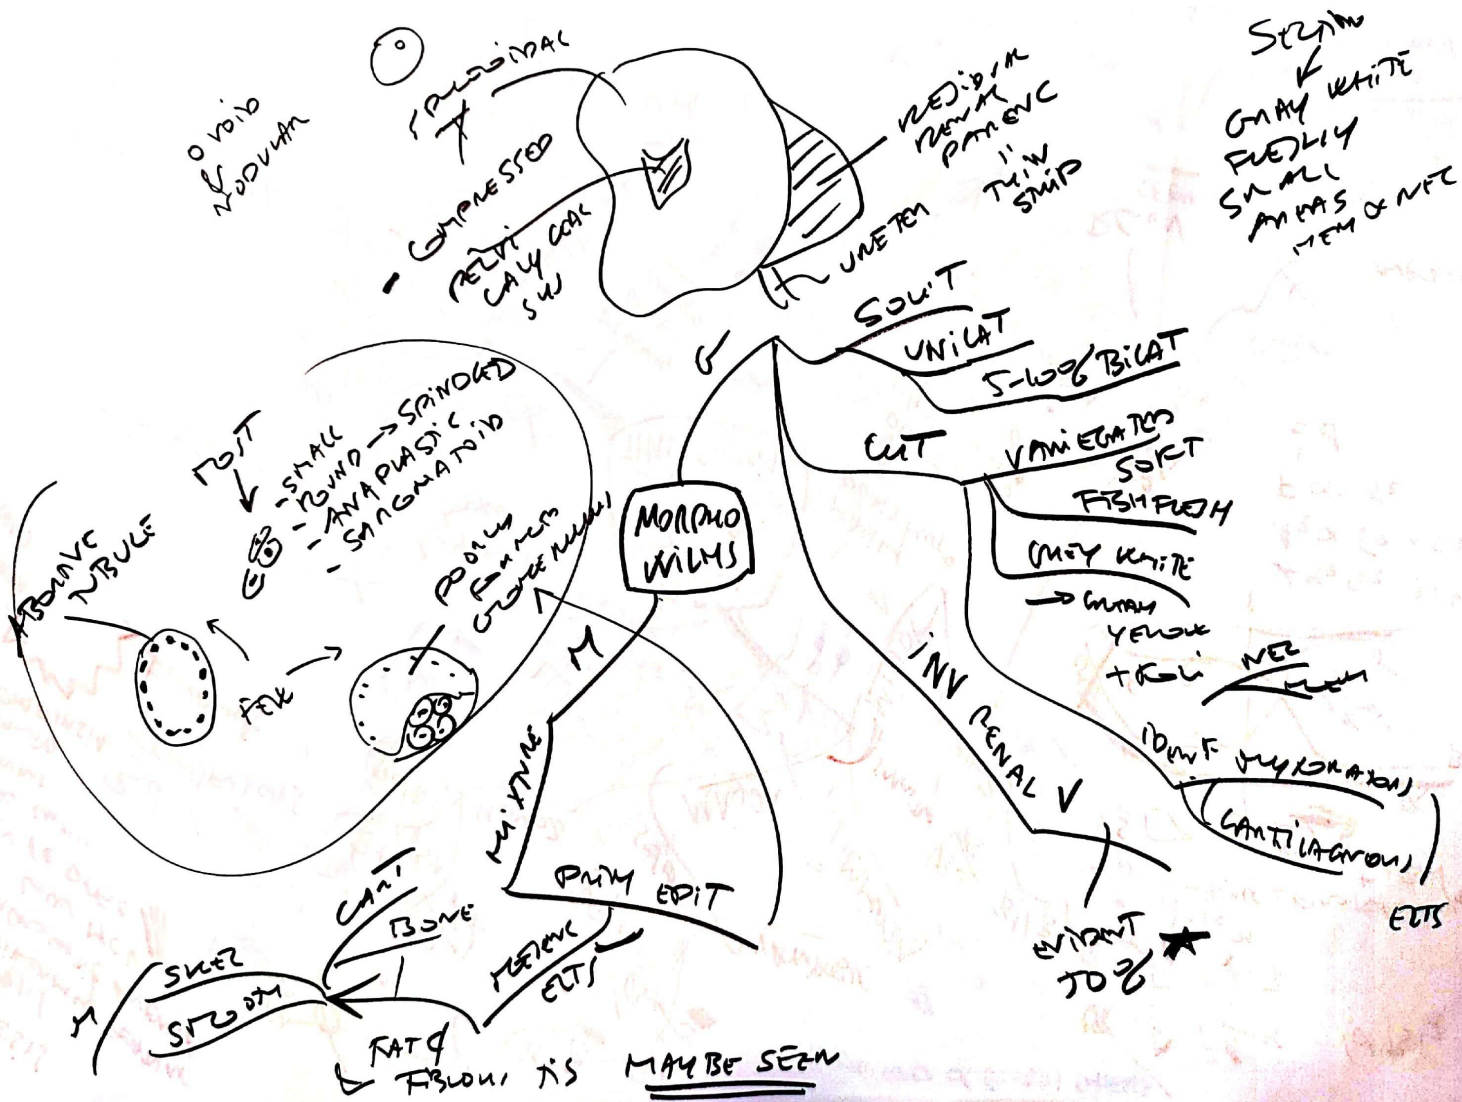 OVOID
&
NODULAR
SPHEROIDAL
- COMPRESSED
PELVI
CALYCEAL
SYS
RESIDUAL
RENAL
PARENC
=
THIN
STRIP
URETER
SECTION
GRAY WHITE
FLESHLY
SMALL
AREAS
HEM & NEC
G
SOLIT
UNILAT
5-10% BILAT
CUT
VARIEGATED
SOFT
FISHFLESH
GREY WHITE
→ GRAY
YELLOW
+ FOCI
NEC
HEM
IDENTIF MYXOMATOUS
CARTILAGNOUS
ELTS
INV RENAL V
EVIDENT
MORPHO
WILMS
M
MIXTURE
PRIM EPIT
MESENC
ELTS
CART
BONE
SKEL
SMOOM
M
FAT &
FIBROUS TIS MAYBE SEEN
MOST
- SMALL
- ROUND → SPINDLED
- ANAPLASTIC
- SARCOMATOID
ABORTIVE
TUBULE
FEW
POORLY
FORMED
GLOMERULUS